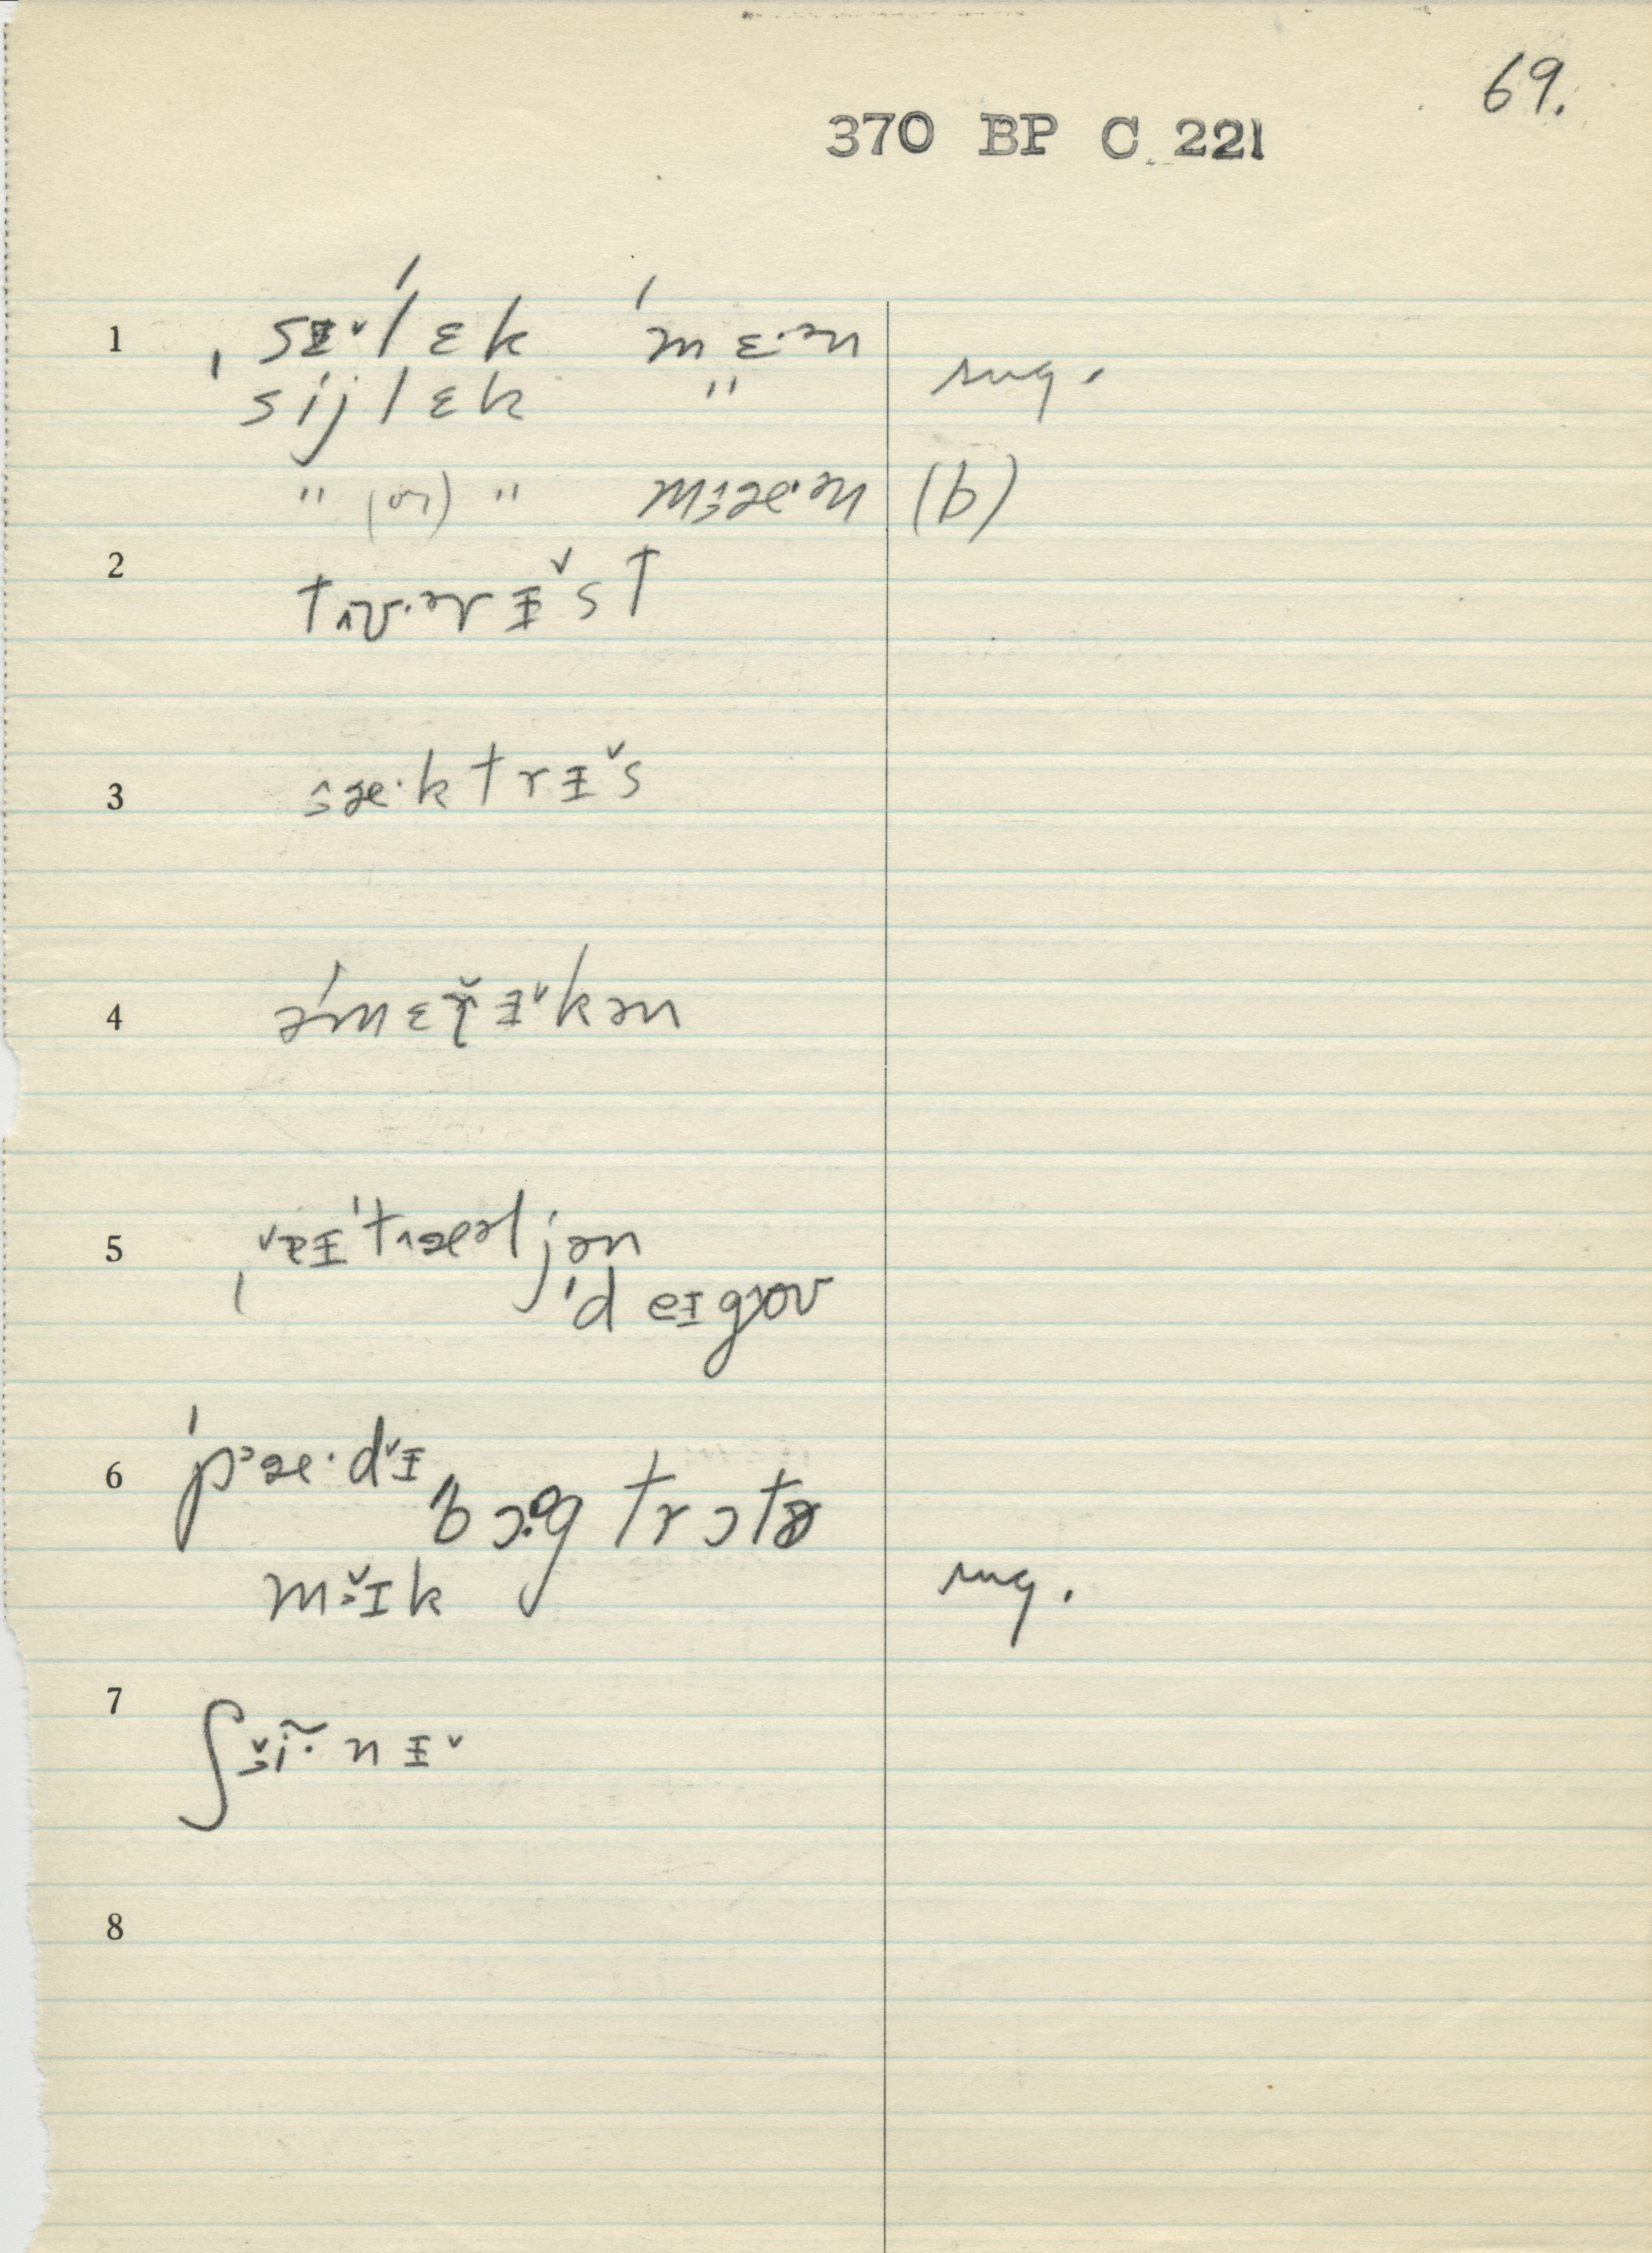 69.
370 BP C 221
1 ˌsɪ˅ˈlɛk ˈmɛ·ən
sijlɛk " sug.
" (or) " mɜæ·ən (b)
2 tʌʊ·ər ɪ˅st
3 ɜæ·ktrɪ˅s
4 əˈmɛr̆ɪ˅kən
5 ˌɪˈtʌæəljən
ˈdeɪgoʊ
6 ˈpæ·dɪ˅
ˈbɔg trɔtɚ
mɪ˅k sug.
7 ʃĩ·nɪ˅
8